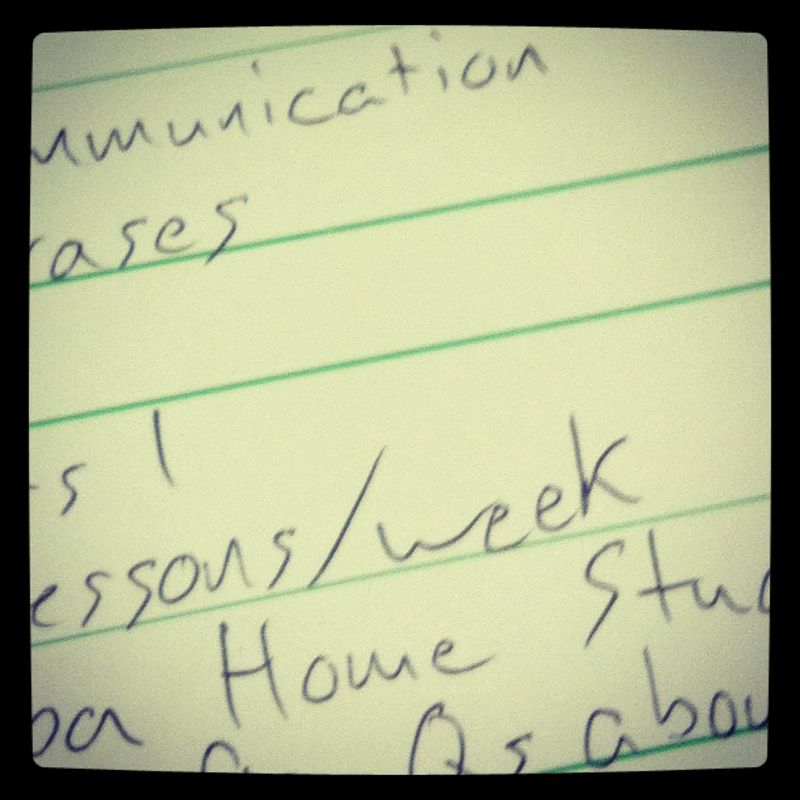 mmunication
rases
s 1
essons/week
pa Home Stud
Qs abou